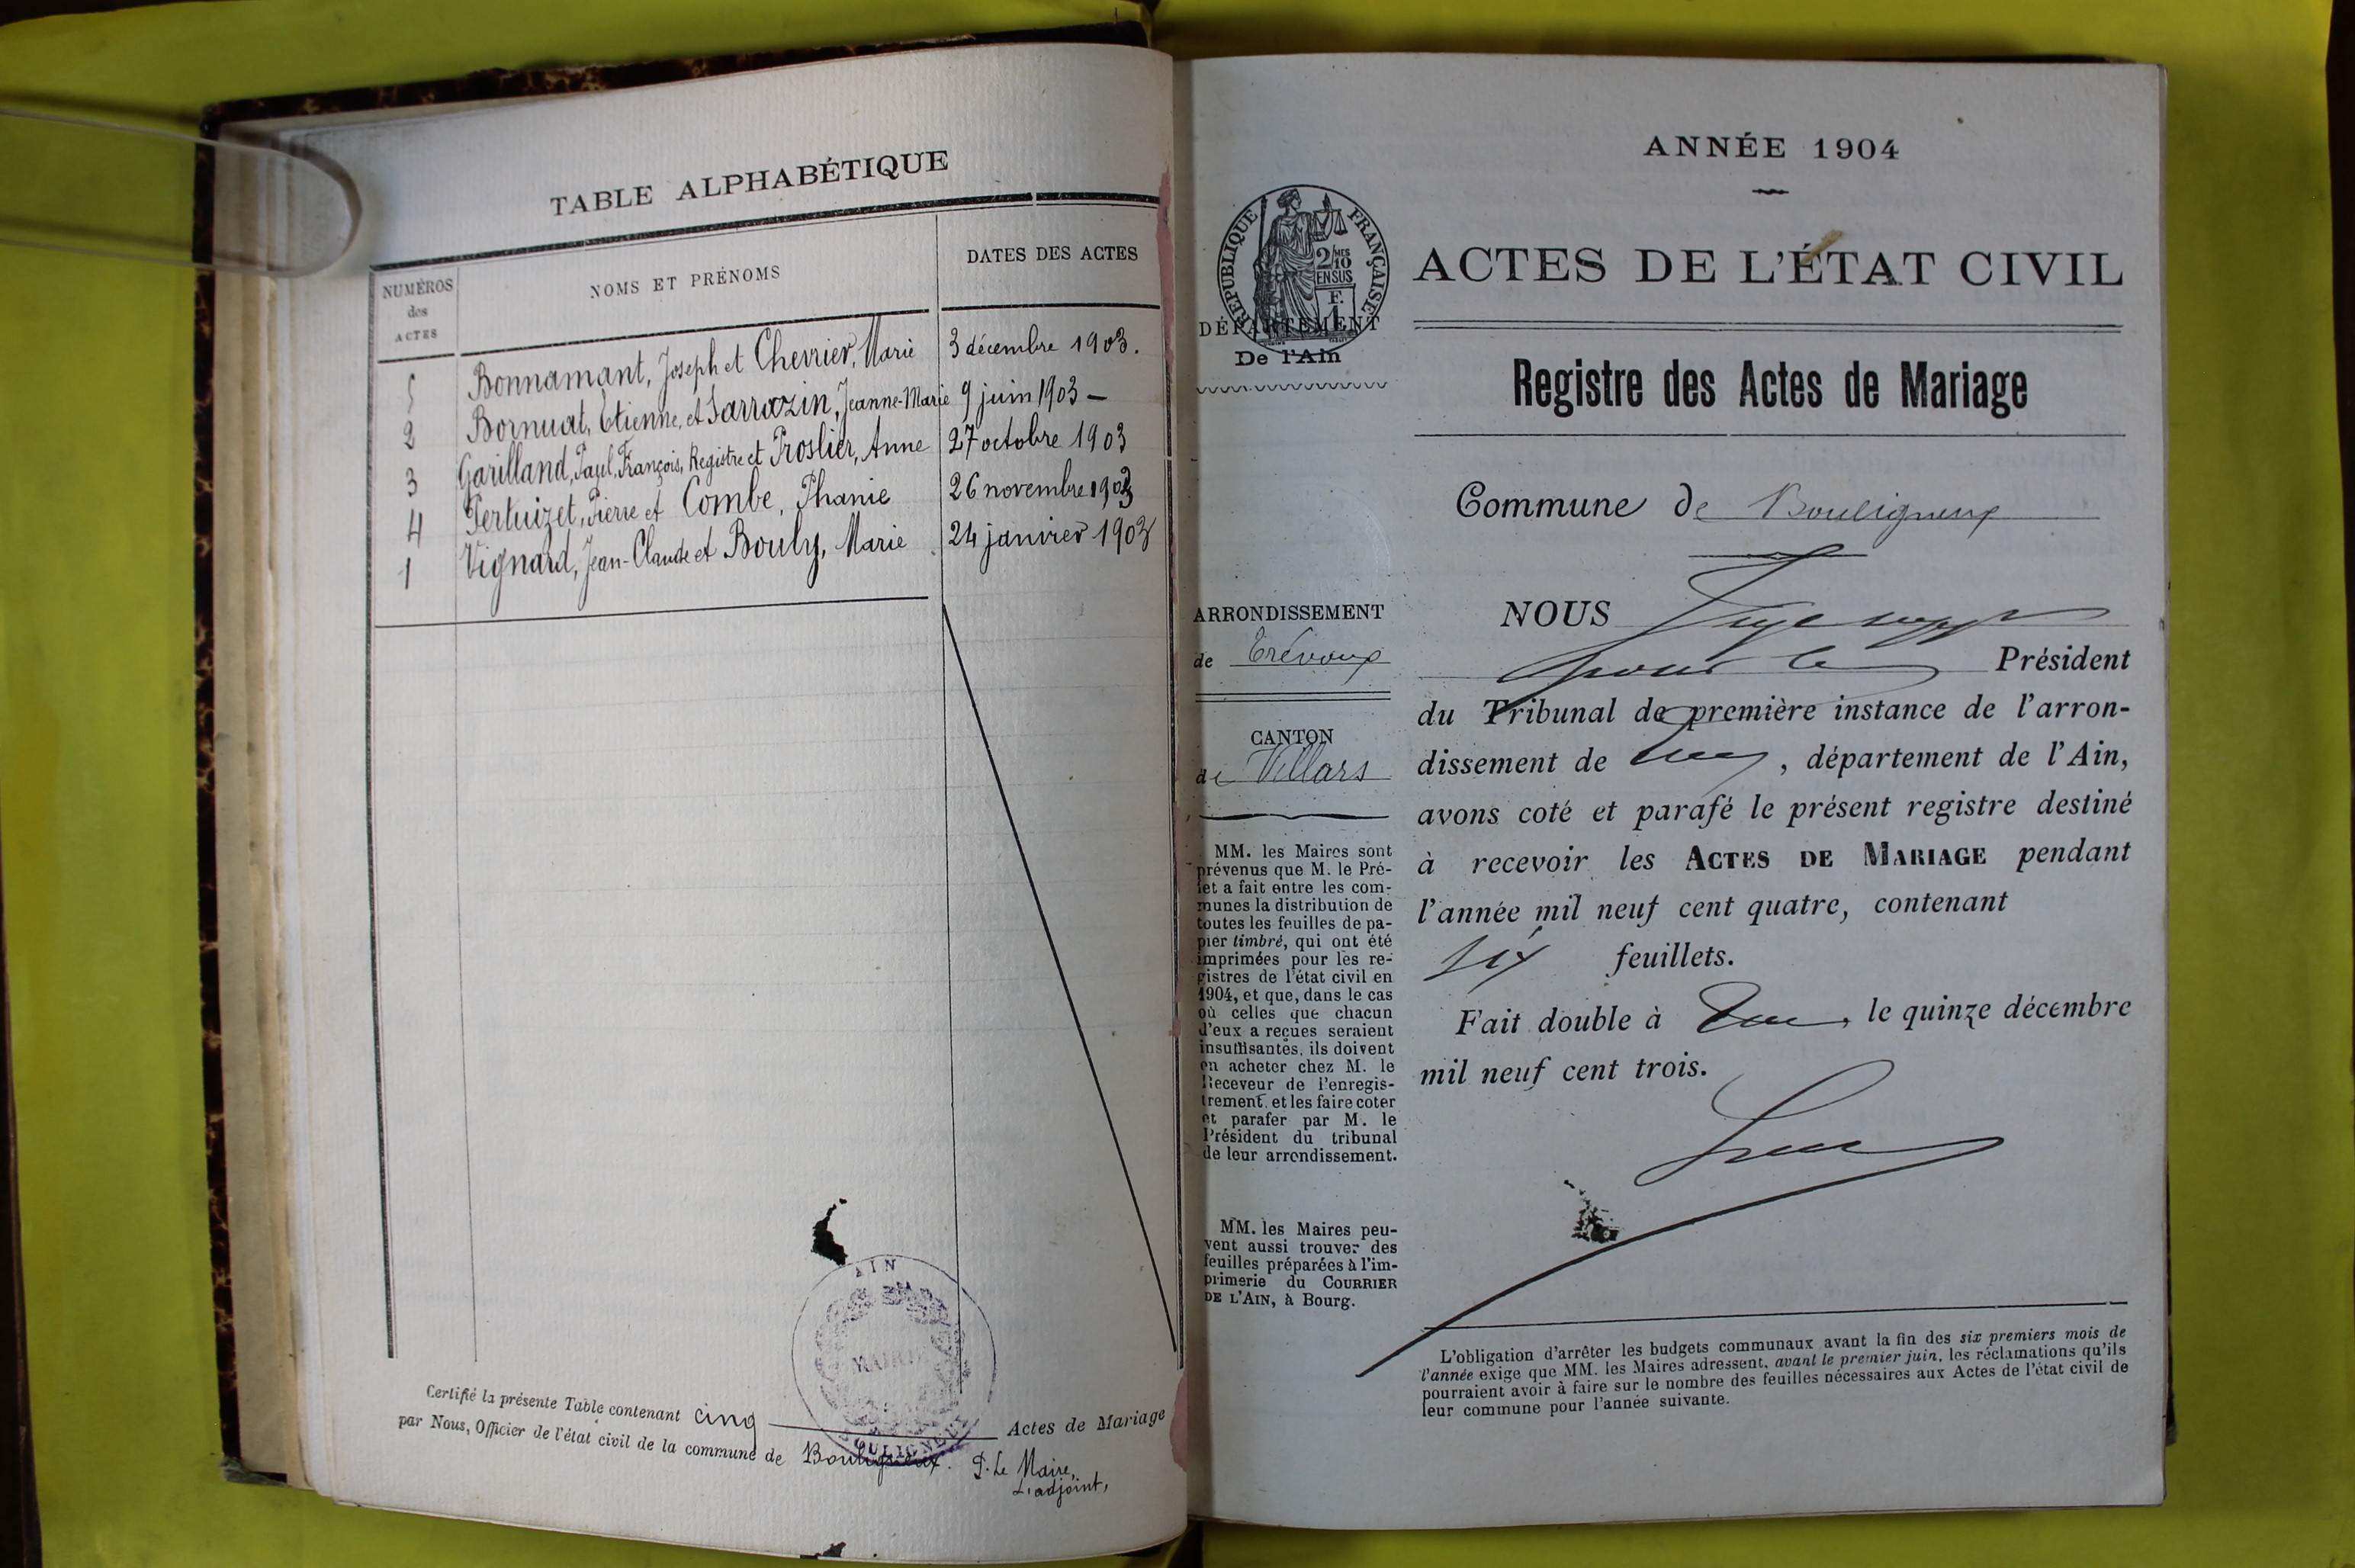 TABLE ALPHABÉTIQUE
NUMÉROS
des
ACTES
NOMS ET PRÉNOMS
DATES DES ACTES
5 Bonnamant, Joseph et Chevrier, Marie 3 décembre 1903.
2 Bornuat, Etienne, et Sarrazin, Jeanne-Marie 9 juin 1903 —
3 Garilland, Paul, François, Registre et Proslier, Anne 27 octobre 1903
4 Pertuizet, Pierre et Combe, Phanie 26 novembre 1903
1 Vignard, Jean-Claude et Bouly, Marie 24 janvier 1903
AIN
MAIRIE
BOULIGNEUX
Certifié la présente Table contenant cinq Actes de Mariage
par Nous, Officier de l'état civil de la commune de Bouligneux.
P. Le Maire,
L'adjoint,
ANNÉE 1904
RÉPUBLIQUE FRANÇAISE
2/10MES
EN SUS
1 F.
DÉPARTEMENT
De l'Ain
ACTES DE L'ÉTAT CIVIL
Registre des Actes de Mariage
Commune de Bouligneux
ARRONDISSEMENT
de Trévoux
CANTON
de Villars
MM. les Maires sont
prévenus que M. le Pré-
fet a fait entre les com-
munes la distribution de
toutes les feuilles de pa-
pier timbré, qui ont été
imprimées pour les re-
gistres de l'état civil en
1904, et que, dans le cas
où celles que chacun
d'eux a reçues seraient
insuffisantes, ils doivent
en acheter chez M. le
Receveur de l'enregis-
trement, et les faire coter
et parafer par M. le
Président du tribunal
de leur arrondissement.
MM. les Maires peu-
vent aussi trouver des
feuilles préparées à l'im-
primerie du COURRIER
DE L'AIN, à Bourg.
NOUS
pour le Président
du Tribunal de première instance de l'arron-
dissement de , département de l'Ain,
avons coté et parafé le présent registre destiné
à recevoir les ACTES DE MARIAGE pendant
l'année mil neuf cent quatre, contenant
six feuillets.
Fait double à , le quinze décembre
mil neuf cent trois.
L'obligation d'arrêter les budgets communaux avant la fin des six premiers mois de
l'année exige que MM. les Maires adressent, avant le premier juin, les réclamations qu'ils
pourraient avoir à faire sur le nombre des feuilles nécessaires aux Actes de l'état civil de
leur commune pour l'année suivante.